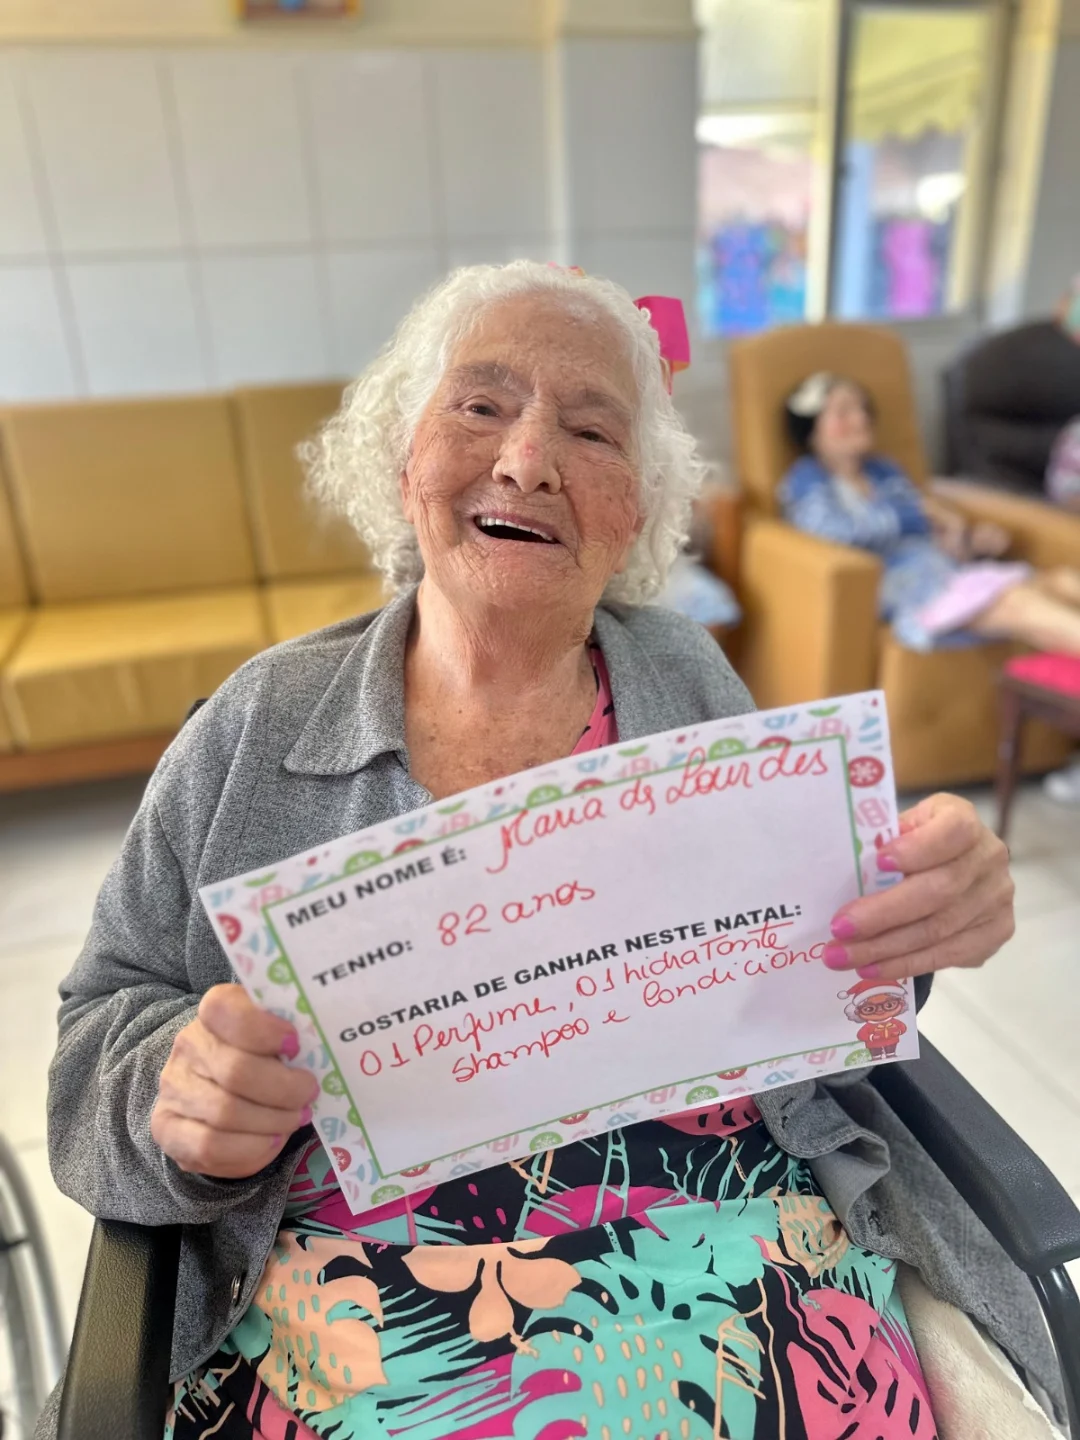 MEU NOME É: Maria de Lourdes
TENHO: 82 anos
GOSTARIA DE GANHAR NESTE NATAL:
01 Perfume, 01 hidratante
Shampoo e